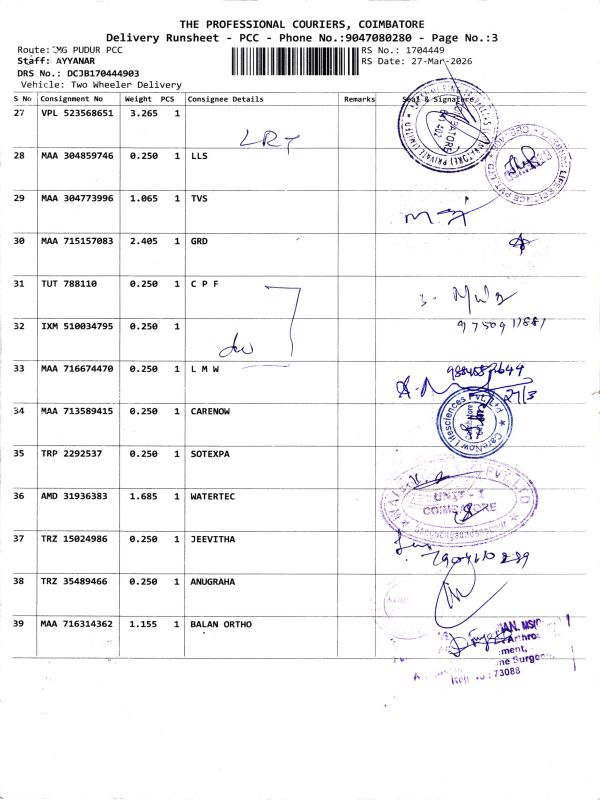 THE PROFESSIONAL COURIERS, COIMBATORE
Delivery Runsheet - PCC - Phone No.:9047080280 - Page No.:3
Route: MG PUDUR PCC RS No.: 1704449
Staff: AYYANAR RS Date: 27-Mar-2026
DRS No.: DCJB170444903
Vehicle: Two Wheeler Delivery
S No Consignment No Weight PCS Consignee Details Remarks Seal & Signature
27 VPL 523568651 3.265 1
LRT
28 MAA 304859746 0.250 1 LLS
29 MAA 304773996 1.065 1 TVS
30 MAA 715157083 2.405 1 GRD
31 TUT 788110 0.250 1 C P F
32 IXM 510034795 0.250 1
33 MAA 716674470 0.250 1 L M W
27/3
34 MAA 713589415 0.250 1 CARENOW
CareNow Lifesciences Pvt Ltd
35 TRP 2292537 0.250 1 SOTEXPA
36 AMD 31936383 1.685 1 WATERTEC
UNIT - I
COIMBATORE
37 TRZ 15024986 0.250 1 JEEVITHA
38 TRZ 35489466 0.250 1 ANUGRAHA
39 MAA 716314362 1.155 1 BALAN ORTHO
73088